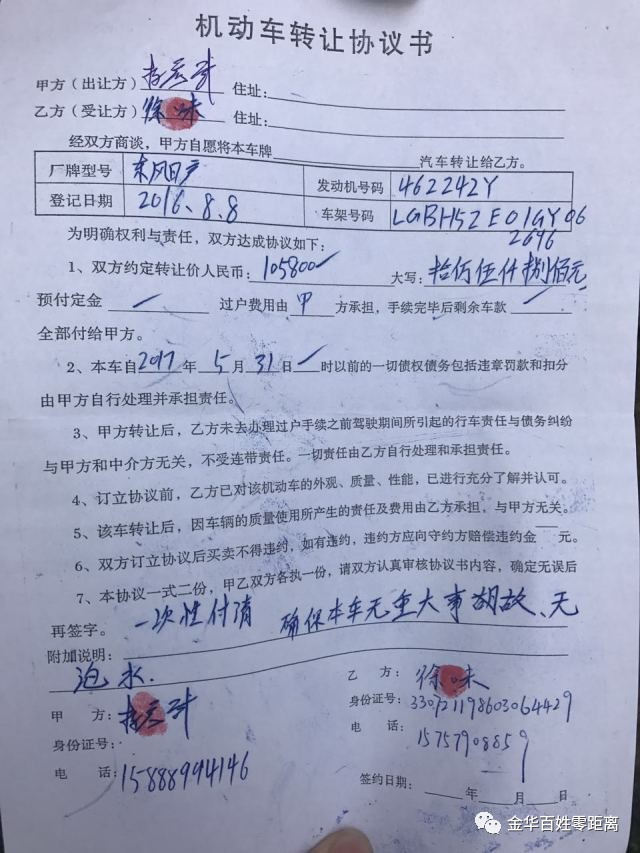 机动车转让协议书
甲方（出让方） 住址：
乙方（受让方）徐味 住址：
经双方商谈，甲方自愿将本车牌 汽车转让给乙方。
厂牌型号 东风日产 发动机号码 462242Y
登记日期 2016.8.8 车架号码 LGBH52E01GY062696
为明确权利与责任，双方达成协议如下：
1、双方约定转让价人民币：105800 大写：拾佰伍仟捌佰元
预付定金 过户费用由 甲 方承担，手续完毕后剩余车款
全部付给甲方。
2、本车自2017年5月31日 时以前的一切债权债务包括违章罚款和扣分
由甲方自行处理并承担责任。
3、甲方转让后，乙方未去办理过户手续之前驾驶期间所引起的行车责任与债务纠纷
与甲方和中介方无关，不受连带责任。一切责任由乙方自行处理和承担责任。
4、订立协议前，乙方已对该机动车的外观、质量、性能，已进行充分了解并认可。
5、该车转让后，因车辆的质量使用所产生的责任及费用由乙方承担，与甲方无关。
6、双方订立协议后买卖不得违约，如有违约，违约方应向守约方赔偿违约金 元。
7、本协议一式二份，甲乙双方各执一份，请双方认真审核协议书内容，确定无误后
再签字。 一次性付清 确保本车无重大事故、无
附加说明：
泡水.
甲 方：
身份证号：
电 话：15888994146
乙 方：徐味
身份证号：330721198603064429
电 话：15757908859
签约日期： 年 月 日
金华百姓零距离